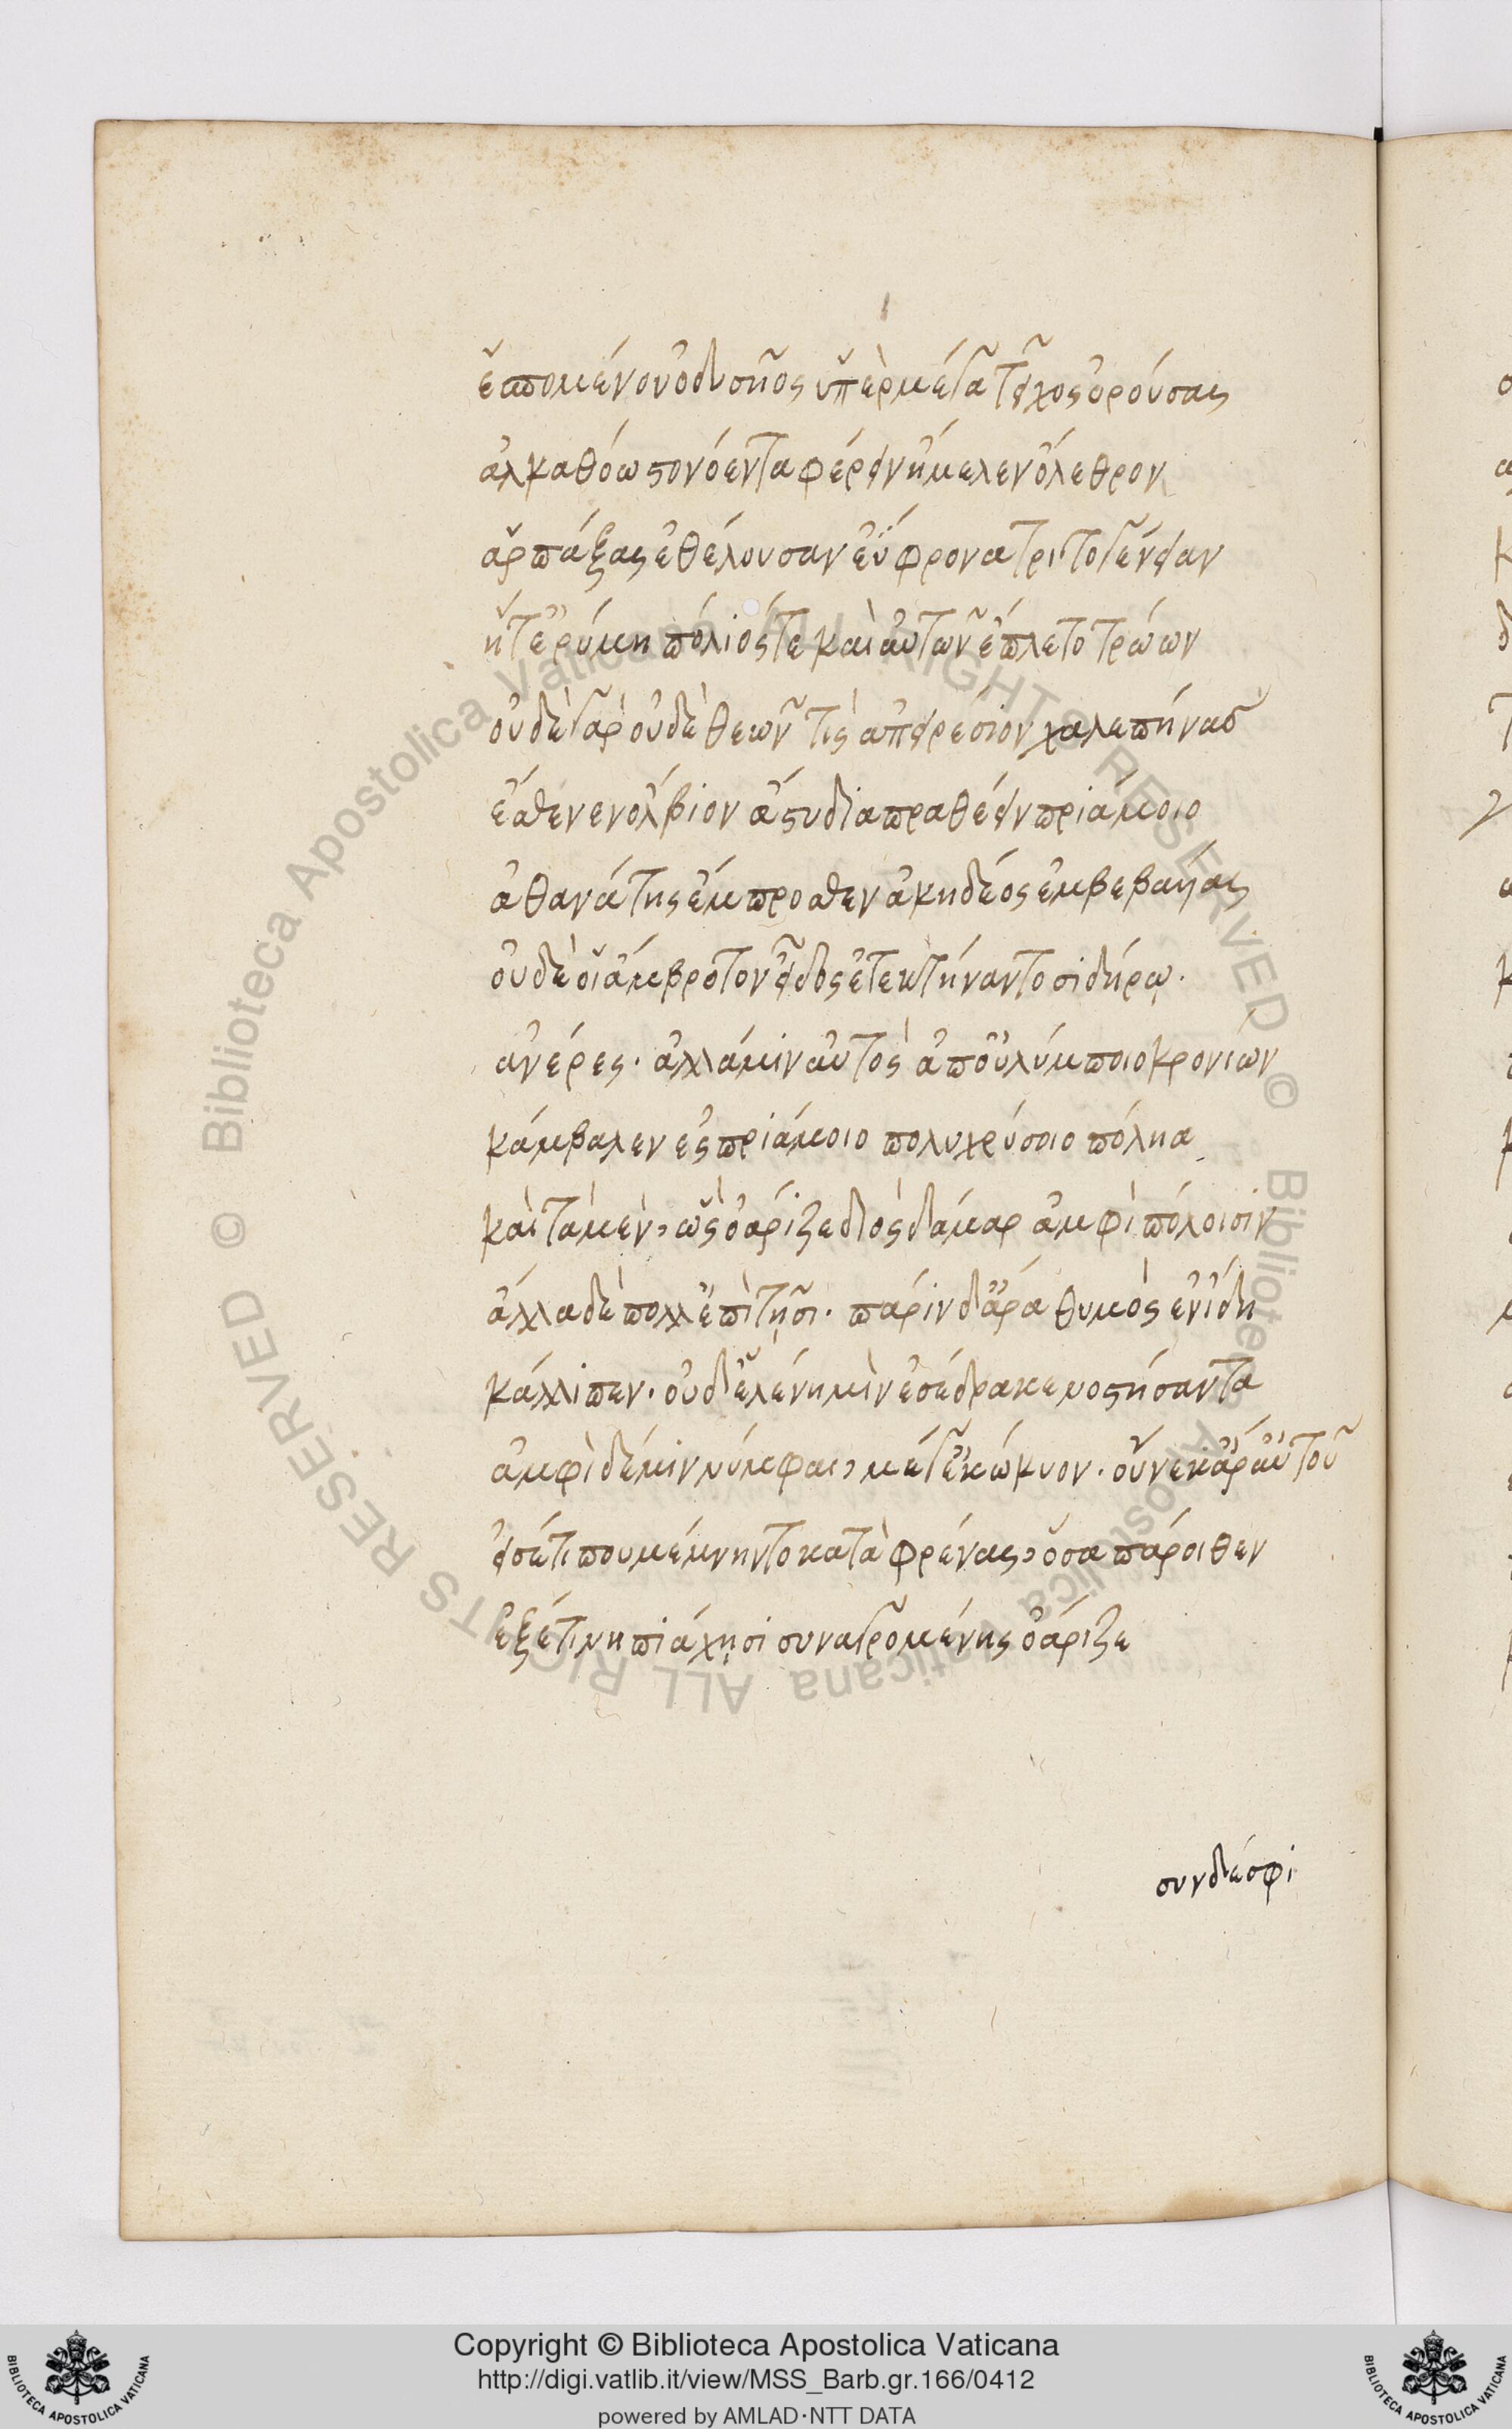 ἑπομένου ὀδυσῆος ὑπὲρ μέγα τεῖχος ὀρούσας
ἀλκαθόω στονόεντα φέρειν ἤμελεν ὄλεθρον
ἁρπάξας ἐθέλουσαν ἐΰφρονα τριτογένειαν
ἥτ' ἔρυμη πόλιός τε καὶ αὐτῶν ἔπλετο τρώων
οὐδὲ γὰρ οὐδὲ θεῶν τὶς ἀπειρέσιον χαλεπήνας
ἔσθενεν ὄλβιον ἄστυ διαπραθέειν πριάμοιο
ἀθανάτης ἔμπροσθεν ἀκηδέος ἐμβεβαυίας
οὐδέ οἱ ἄμβροτον εἶδος ἐτεκτήναντο σιδήρῳ.
ἀνέρες. ἀλλά μιν αὐτὸς ἀπ' οὐλύμποιο κρονίων
κάμβαλεν ἐς πριάμοιο πολυχρύσοιο πόληα
καὶ τὰ μὲν, ὣς ὀάριζε διὸς δάμαρ ἀμφὶπόλοισιν
ἄλλα δὲ πολλ' ἐπὶ τῇσι. πάριν δ' ἄρα θυμὸς ἐν ἴδη
κάλλιπεν. οὐδ' ἑλένη μὶν ἐσέδρακε νοστήσαντα
ἀμφὶ δέ μιν νύμφαι, μέγ' ἐκώκυον. οὕνεκ' ἄρ' αὐτοῦ
εἰσέτι που μέμνηντο κατὰ φρένας, ὅσα πάροιθεν
ἐξέτι νηπιάχησι συναγρομένης ὀάριζε
συν δέ σφι
Copyright © Biblioteca Apostolica Vaticana
http://digi.vatlib.it/view/MSS_Barb.gr.166/0412
powered by AMLAD·NTT DATA